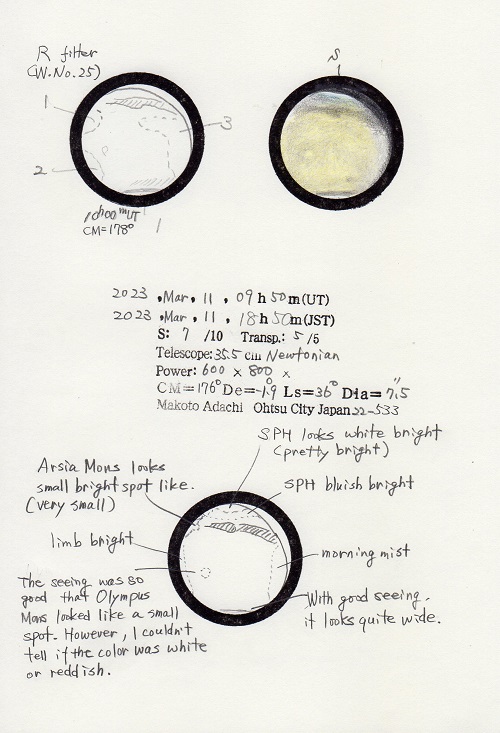 R filter
(W.No.25)
S
1
3
2
10h00mUT
CM=178°
2023 , Mar, 11 , 09h50m(UT)
2023 , Mar, 11 , 18h50m(JST)
S: 7 /10 Transp.: 5 /5
Telescope: 35.5 cm Newtonian
Power: 600 × 800 ×
CM=176° De=-1.9° Ls=36° Dia=7.5"
Makoto Adachi Ohtsu City Japan 22-533
SPH looks white bright
(pretty bright)
Arsia Mons looks
small bright spot like.
(very small)
SPH bluish bright
limb bright
morning mist
The seeing was so
good that Olympus
Mons looked like a small
spot. However, I couldn't
tell if the color was white
or reddish.
With good seeing.
it looks quite wide.